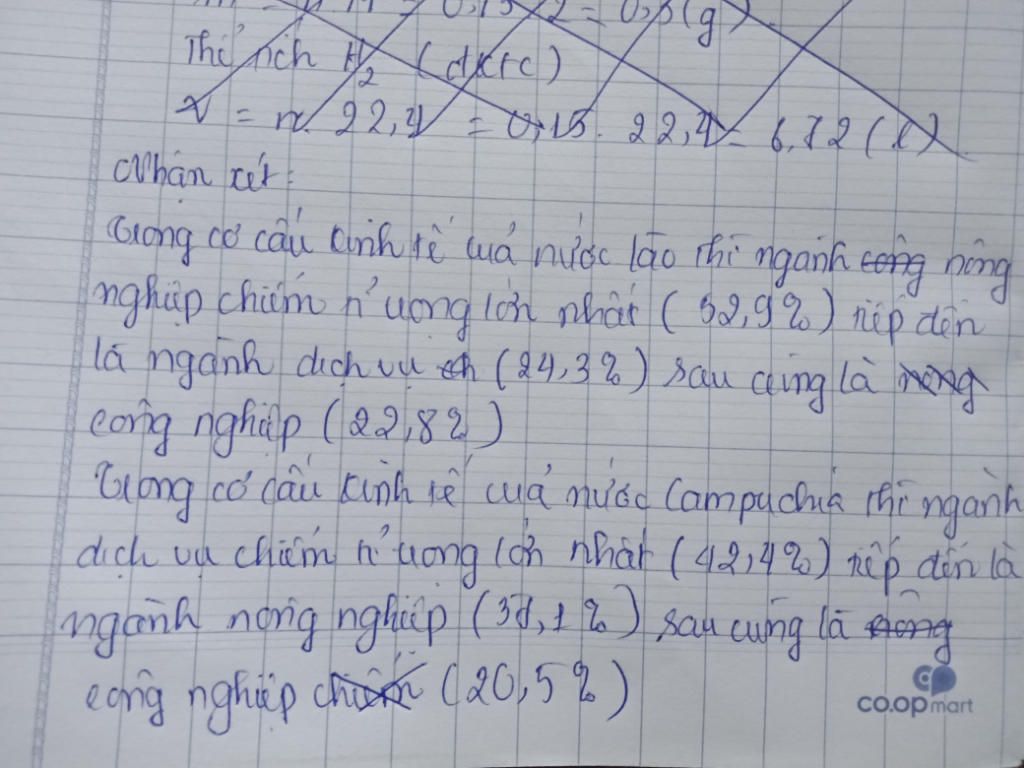 = 0,15 . 2 = 0,3 (g)
Thể tích H2 (đktc)
V = n. 22,4 = 0,15. 22,4 = 6,72 (l)
Nhận xét:
Trong cơ cấu kinh tế của nước lào thì ngành công nông
nghiệp chiếm tỉ trọng lớn nhất (52,9%) tiếp đến
là ngành dịch vụ ch (24,3%) sau cùng là nông
công nghiệp (22,8%)
Trong cơ cấu kinh tế của nước Campuchia thì ngành
dịch vụ chiếm tỉ trọng lớn nhất (42,4%) tiếp đến là
ngành nông nghiệp (37,1%) sau cùng là
công nghiệp chiếm (20,5%)
co.opmart